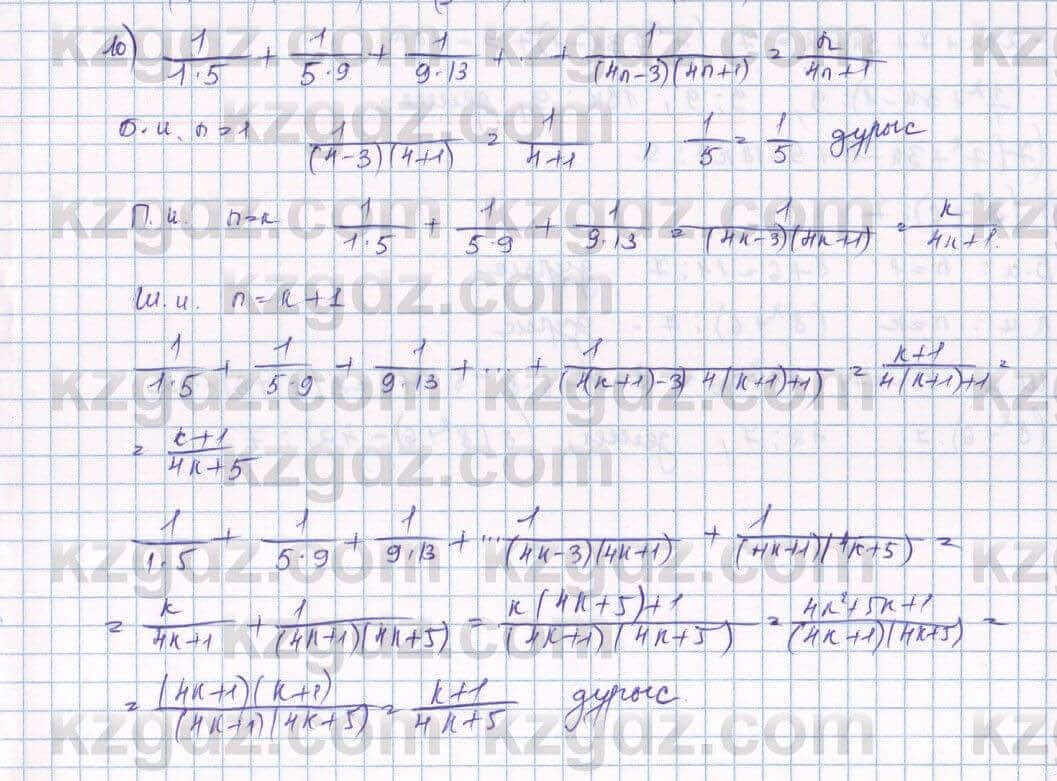 10) 1/(1·5) + 1/(5·9) + 1/(9·13) + ... + 1/((4n-3)(4n+1)) = n/(4n+1)
Б.и. n=1 1/((4-3)(4+1)) = 1/(4+1) , 1/5 = 1/5 дұрыс
П.и. n=k 1/(1·5) + 1/(5·9) + 1/(9·13) = 1/((4k-3)(4k+1)) = k/(4k+1).
Ш.и. n=k+1
1/(1·5) + 1/(5·9) + 1/(9·13) + ... + 1/((4(k+1)-3) 4(k+1)+1) = (k+1)/(4(k+1)+1) =
= (k+1)/(4k+5)
1/(1·5) + 1/(5·9) + 1/(9·13) + ... 1/((4k-3)(4k+1)) + 1/((4k+1)(4k+5)) =
= k/(4k+1) + 1/((4k+1)(4k+5)) = (k(4k+5)+1)/((4k+1)(4k+5)) = (4k²+5k+1)/((4k+1)(4k+5)) =
= ((4k+1)(k+1))/((4k+1)(4k+5)) = (k+1)/(4k+5) дұрыс.
kzgdz.com